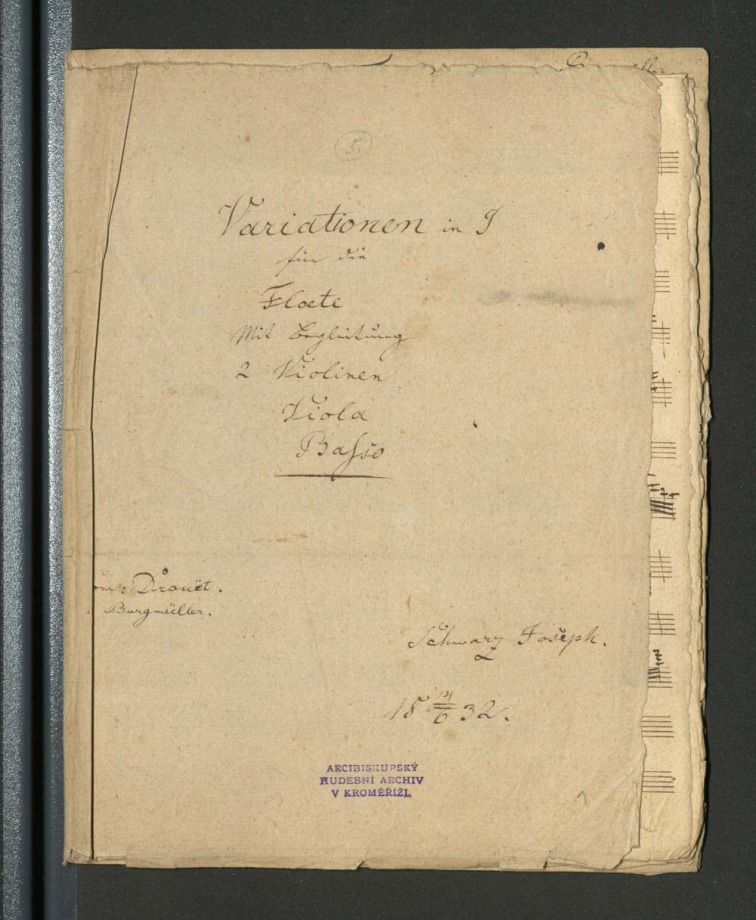 5.
Variationen in G
für die
Floete
Mit Begleitung
2 Violinen
Viola
Basso
Drouët.
Burgmüller.
Schwarz Joseph.
18 14/6 32.
ARCIBISKUPSKÝ
HUDEBNÍ ARCHIV
V KROMĚŘÍŽI.